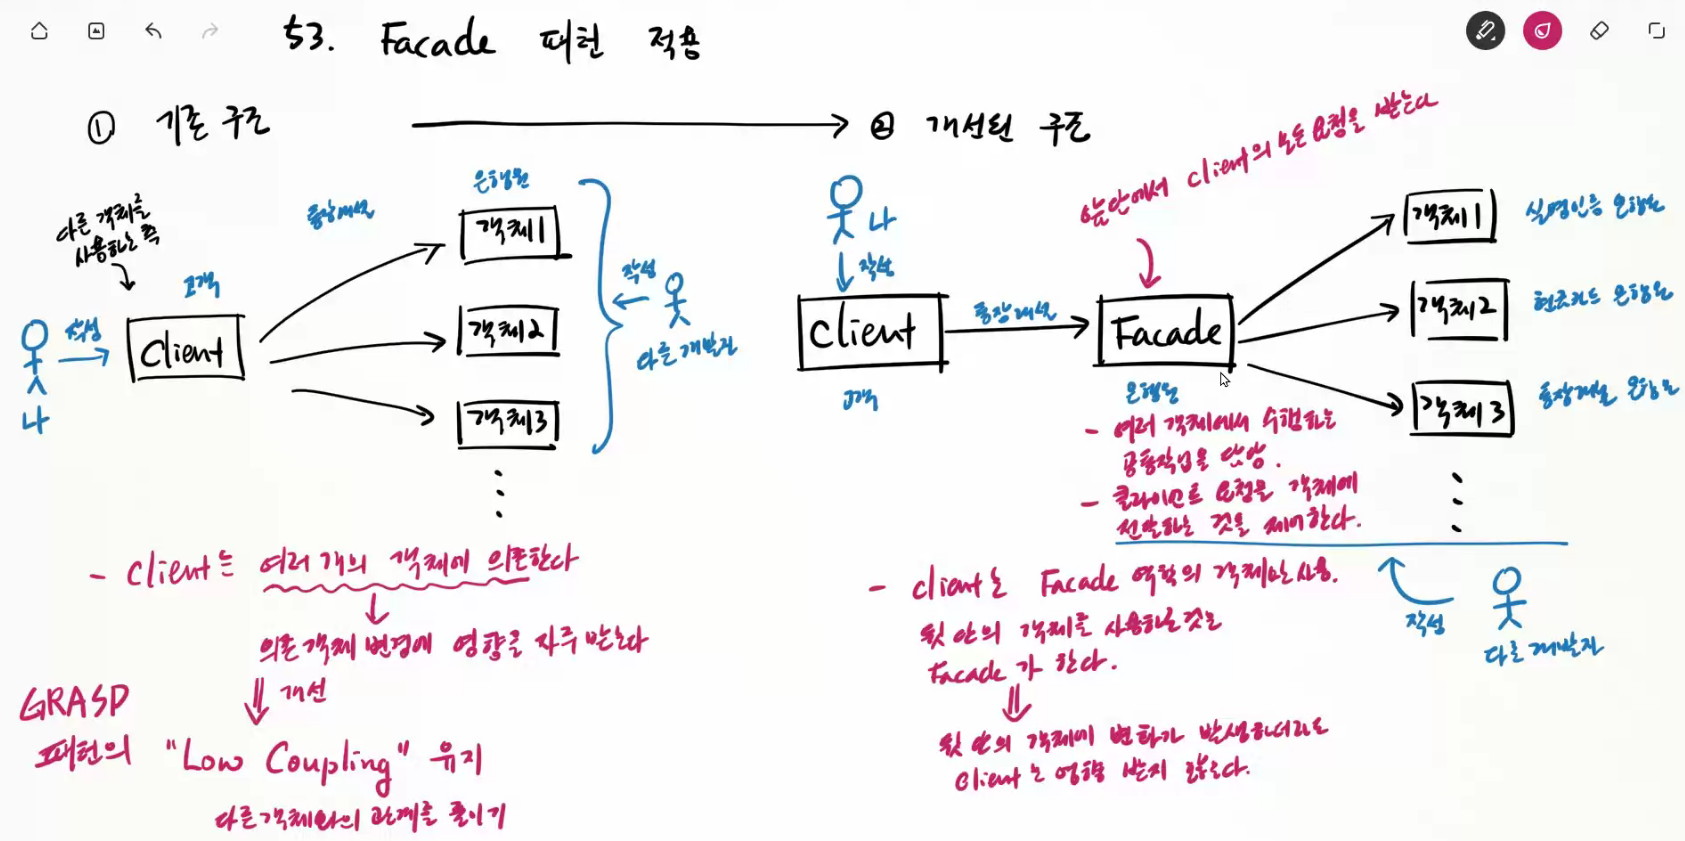 53. Facade 패턴 적용
① 기존 구조
② 개선된 구조
다른 객체를
사용하는 쪽
고객
통장개설
은행원
작성
나
Client
객체1
객체2
객체3
작성
다른 개발자
- Client는 여러 개의 객체에 의존한다
의존 객체 변경에 영향을 자주 받는다
개선
GRASP
패턴의 "Low Coupling" 유지
다른 객체와의 관계를 줄이기
앞단에서 client의 모든 요청을 받는다
나
작성
Client
고객
통장개설
Facade
은행원
- 여러 객체에서 수행하는
공통작업을 담당.
- 클라이언트 요청을 객체에
전달하는 것을 제어한다.
객체1
실명인증 은행원
객체2
현금카드 은행원
객체3
통장개설 은행원
작성
다른 개발자
- client는 Facade 역할의 객체만 사용.
뒷 단의 객체를 사용하는 것은
Facade가 한다.
뒷 단의 객체에 변화가 발생하더라도
Client는 영향 받지 않는다.